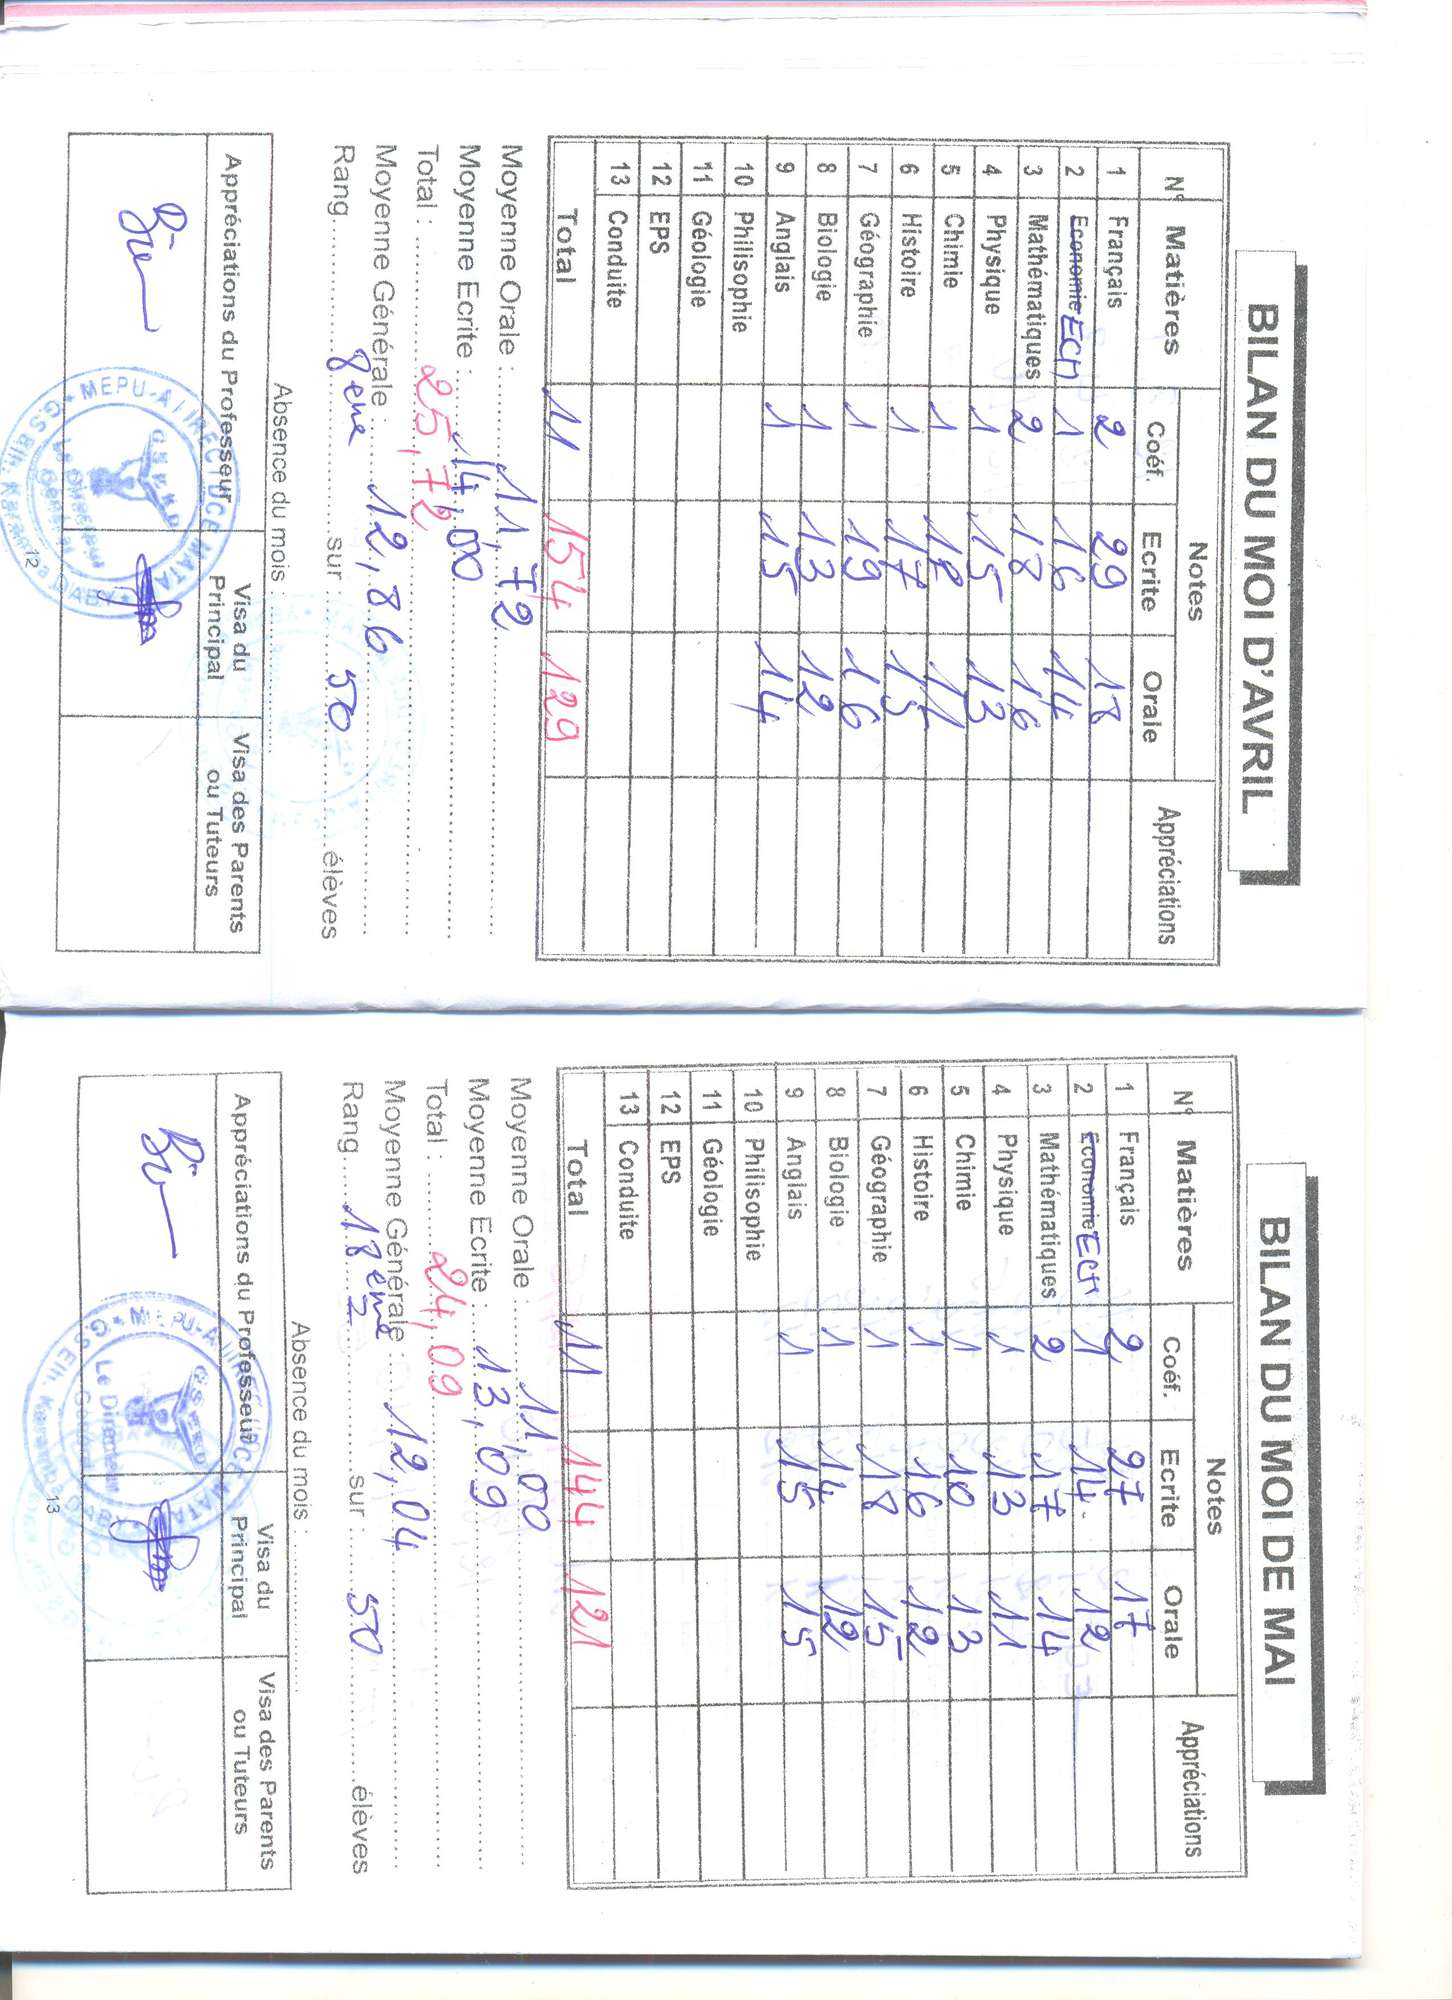 BILAN DU MOI D'AVRIL
N° Matières Notes Appréciations
Coéf. Ecrite Orale
1 Français 2 29 18
2 Economie ECM 1 16 14
3 Mathématiques 2 18 16
4 Physique 1 15 13
5 Chimie 1 12 11
6 Histoire 1 17 15
7 Géographie 1 19 16
8 Biologie 1 13 12
9 Anglais 1 15 14
10 Philisophie
11 Géologie
12 EPS
13 Conduite
Total 11 154 129
Moyenne Orale : 11,72
Moyenne Ecrite : 14,00
Total : 25,72
Moyenne Générale : 12,86
Rang 8eme sur 50 élèves
Absence du mois :
Appréciations du Professeur Visa du Principal Visa des Parents ou Tuteurs
Bien
12
BILAN DU MOI DE MAI
N° Matières Notes Appréciations
Coéf. Ecrite Orale
1 Français 2 27 17
2 Economie ECM 1 14 12
3 Mathématiques 2 17 14
4 Physique 1 13 11
5 Chimie 1 10 13
6 Histoire 1 16 12
7 Géographie 1 18 15
8 Biologie 1 14 12
9 Anglais 1 15 15
10 Philisophie
11 Géologie
12 EPS
13 Conduite
Total 11 144 121
Moyenne Orale : 11,00
Moyenne Ecrite : 13,09
Total : 24,09
Moyenne Générale : 12,04
Rang 18eme sur : 50 élèves
Absence du mois :
Appréciations du Professeur Visa du Principal Visa des Parents ou Tuteurs
Bien
Le Directeur
13